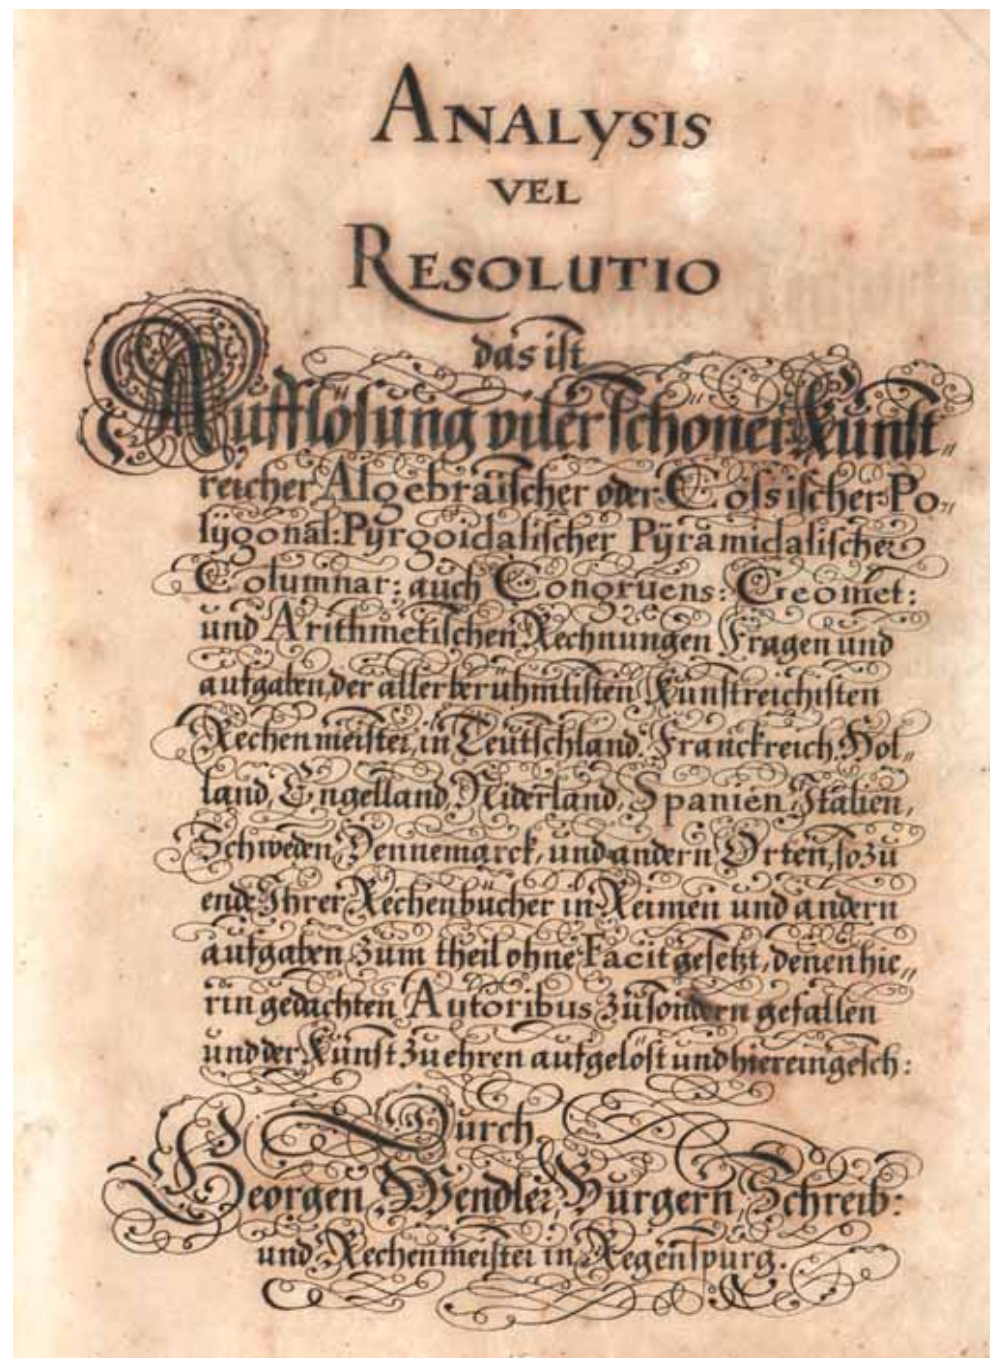 ANALYSIS
VEL
RESOLUTIO
das ist
Aufflösung viler schöner Künst„
reicher Algebraischer oder Cossischer Po„
lÿgonal: Pÿrgoidalischer Pÿramidalischer
Columnar: auch Congruens: Geomet:
und Arithmetischen Rechnungen Fragen und
aufgaben, der allerberühmtisten Kunstreichisten
Rechenmeister, in Teutschland, Franckreich, Hol„
land, Engelland, Niderland, Spanien, Italien,
Schweden, Dennemarck, und andern Orten, so zu
ende Ihrer Rechenbücher in Reimen und andern
aufgaben zum theil ohne Facit gesetzt, denen hie„
rin gedachten Autoribus zu sondern gefallen
und der Kunst zu ehren aufgelöst und hierein gesch:
Durch
Georgen Wendler, Burgern, Schreib:
und Rechenmeister in Regenspurg.